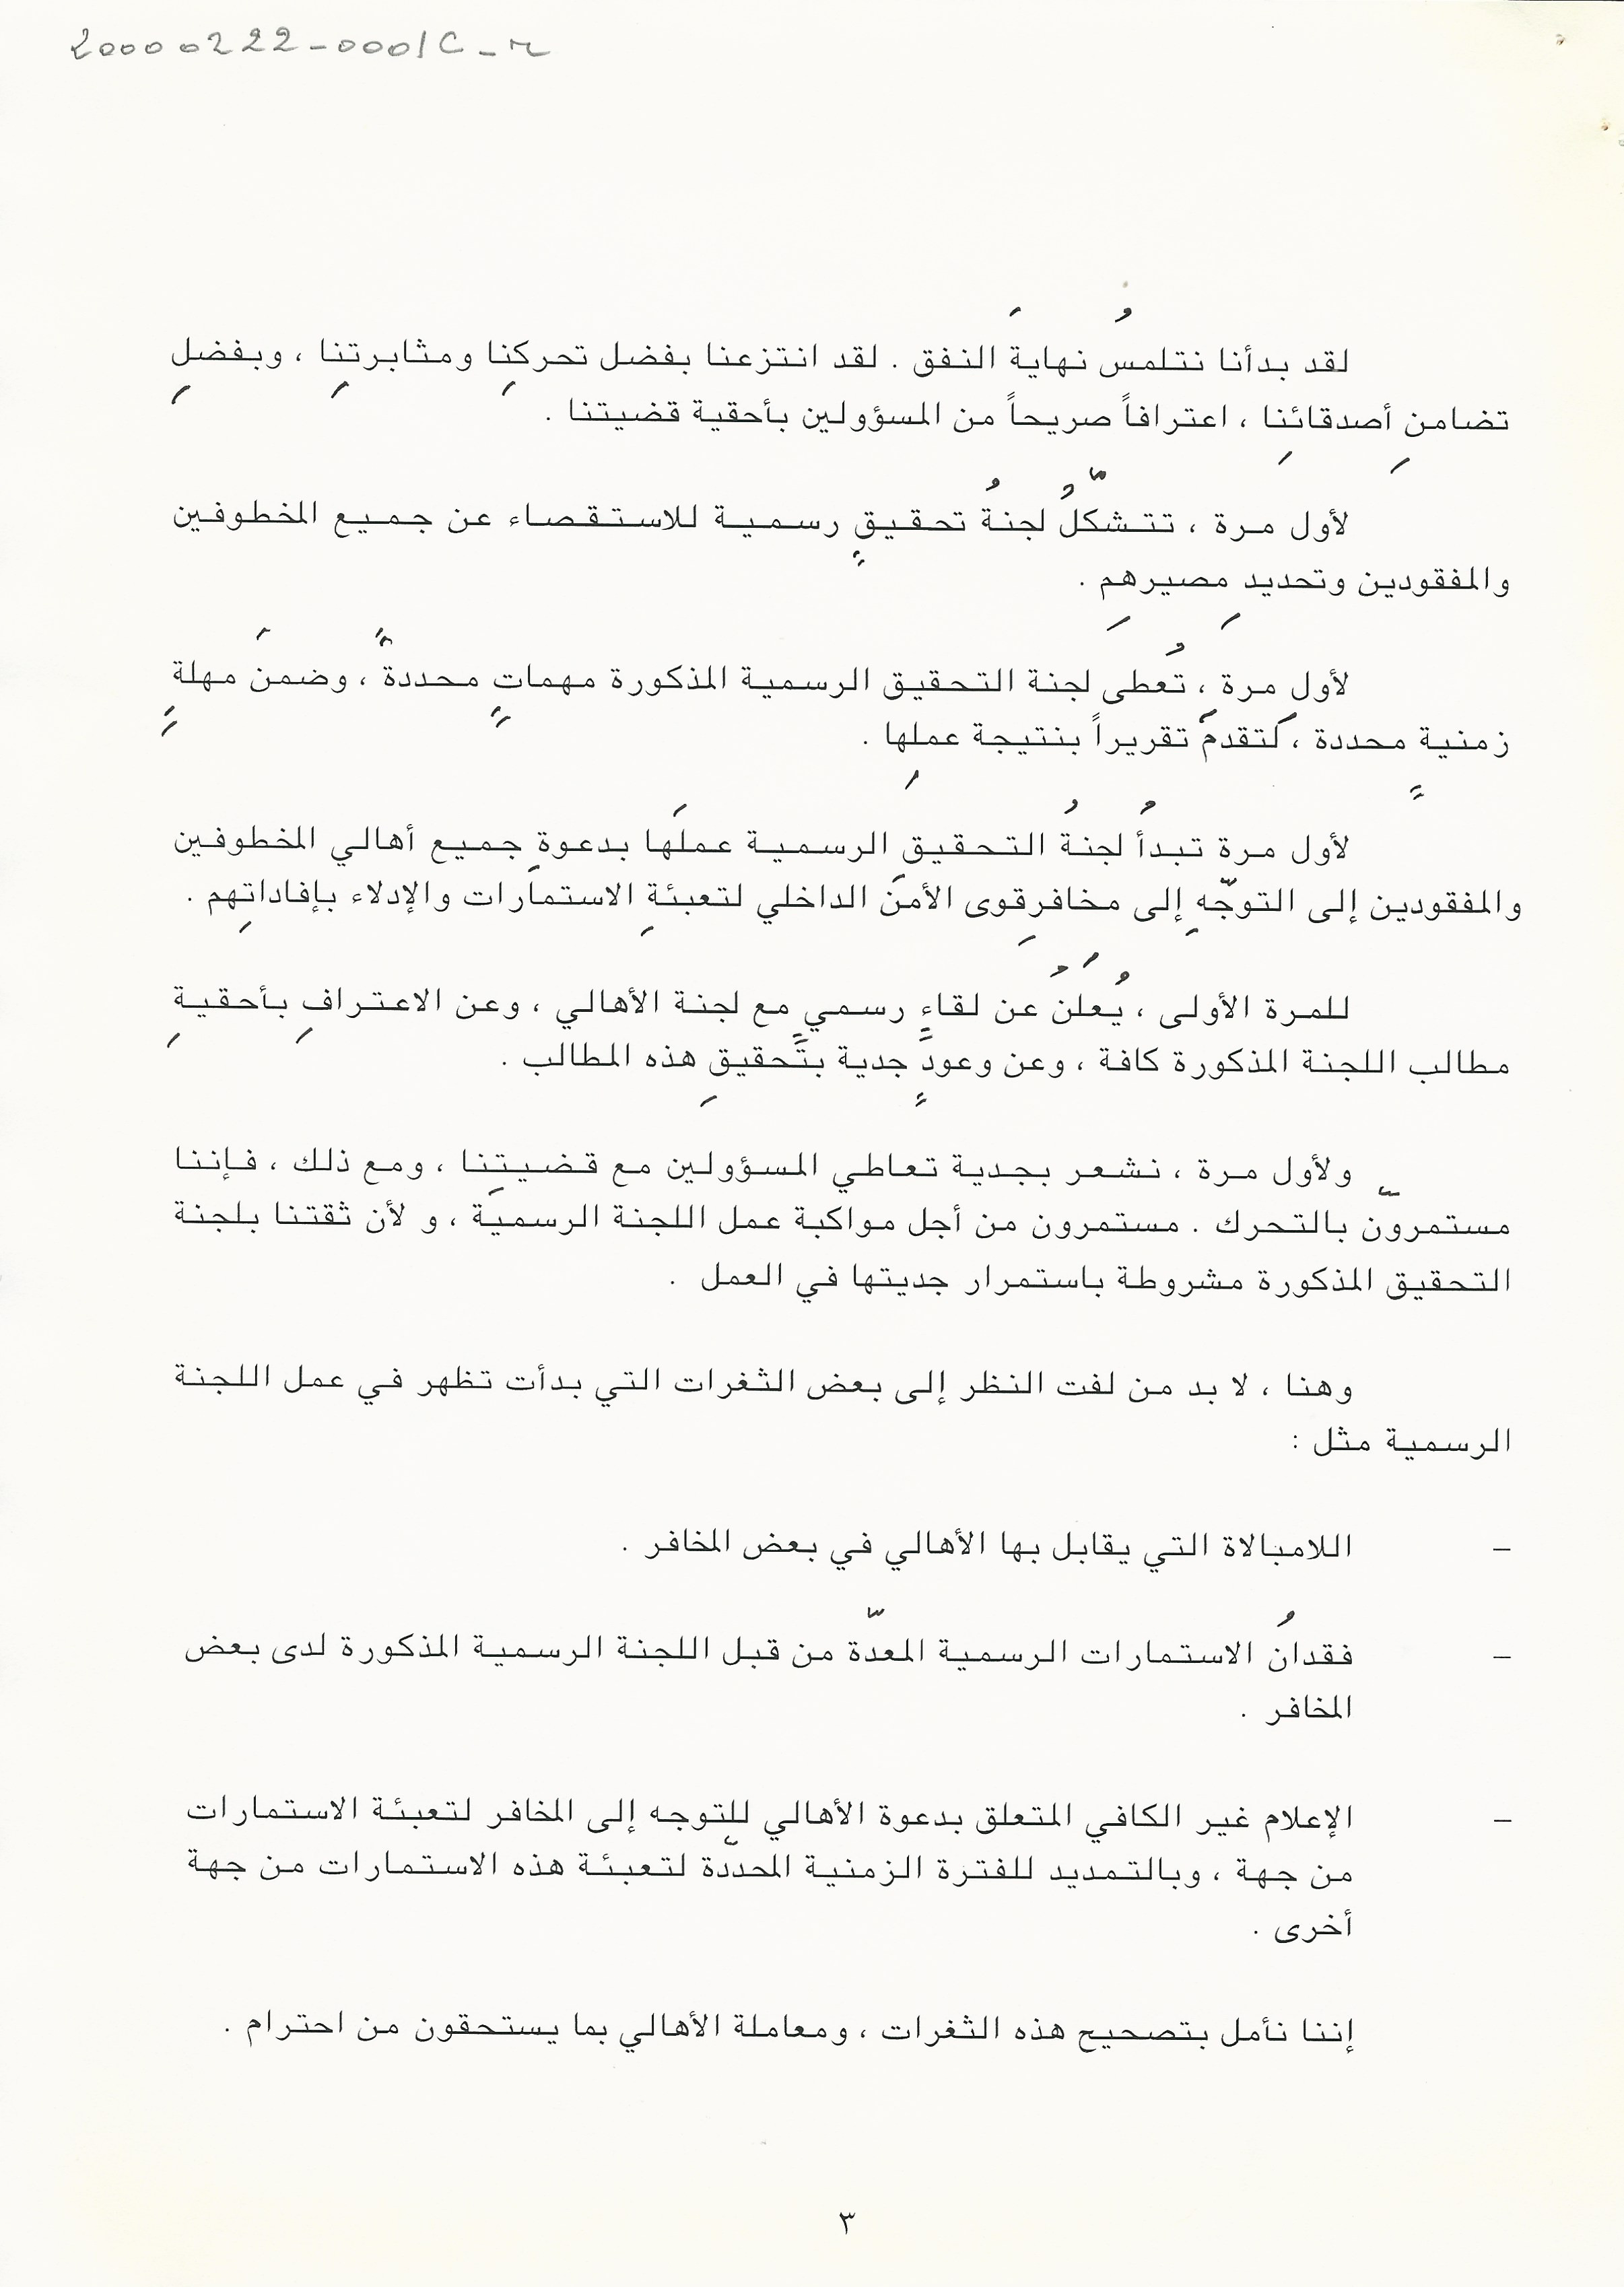 20000222-0001C-r
لقد بدأنا نتلمسُ نهايةَ النفق . لقد انتزعنا بفضل تحركِنا ومثابرتِنا ، وبفضلِ
تضامنِ أصدقائِنا ، اعترافاً صريحاً من المسؤولين بأحقية قضيتنا .
لأول مرة ، تتشكّلُ لجنةُ تحقيقٍ رسمية للاستقصاء عن جميع المخطوفين
والمفقودين وتحديد مصيرِهِم .
لأول مرة ، تُعطى لجنة التحقيق الرسمية المذكورة مهماتٍ محددةً ، وضمنَ مهلةٍ
زمنيةٍ محددة ، لتقدمَ تقريراً بنتيجة عملِها .
لأول مرة تبدأُ لجنةُ التحقيق الرسمية عملَها بدعوة جميع أهالي المخطوفين
والمفقودين إلى التوجّهِ إلى مخافرِ قوى الأمن الداخلي لتعبئةِ الاستمارات والإدلاء بإفاداتِهم .
للمرة الأولى ، يُعلَنُ عن لقاءٍ رسميٍ مع لجنة الأهالي ، وعن الاعترافِ بأحقيةِ
مطالب اللجنة المذكورة كافة ، وعن وعودٍ جدية بتحقيقِ هذه المطالب .
ولأول مرة ، نشعر بجدية تعاطي المسؤولين مع قضيتنا ، ومع ذلك ، فإننا
مستمرّون بالتحرك . مستمرون من أجل مواكبة عمل اللجنة الرسمية ، و لأن ثقتنا بلجنة
التحقيق المذكورة مشروطة باستمرار جديتها في العمل .
وهنا ، لا بد من لفت النظر إلى بعض الثغرات التي بدأت تظهر في عمل اللجنة
الرسمية مثل :
– اللامبالاة التي يقابل بها الأهالي في بعض المخافر .
– فقدانُ الاستمارات الرسمية المعدّة من قبل اللجنة الرسمية المذكورة لدى بعض
المخافر .
– الإعلام غير الكافي المتعلق بدعوة الأهالي للتوجه إلى المخافر لتعبئة الاستمارات
من جهة ، وبالتمديد للفترة الزمنية المحدّدة لتعبئة هذه الاستمارات من جهة
أخرى .
إننا نأمل بتصحيح هذه الثغرات ، ومعاملة الأهالي بما يستحقون من احترام .
٣